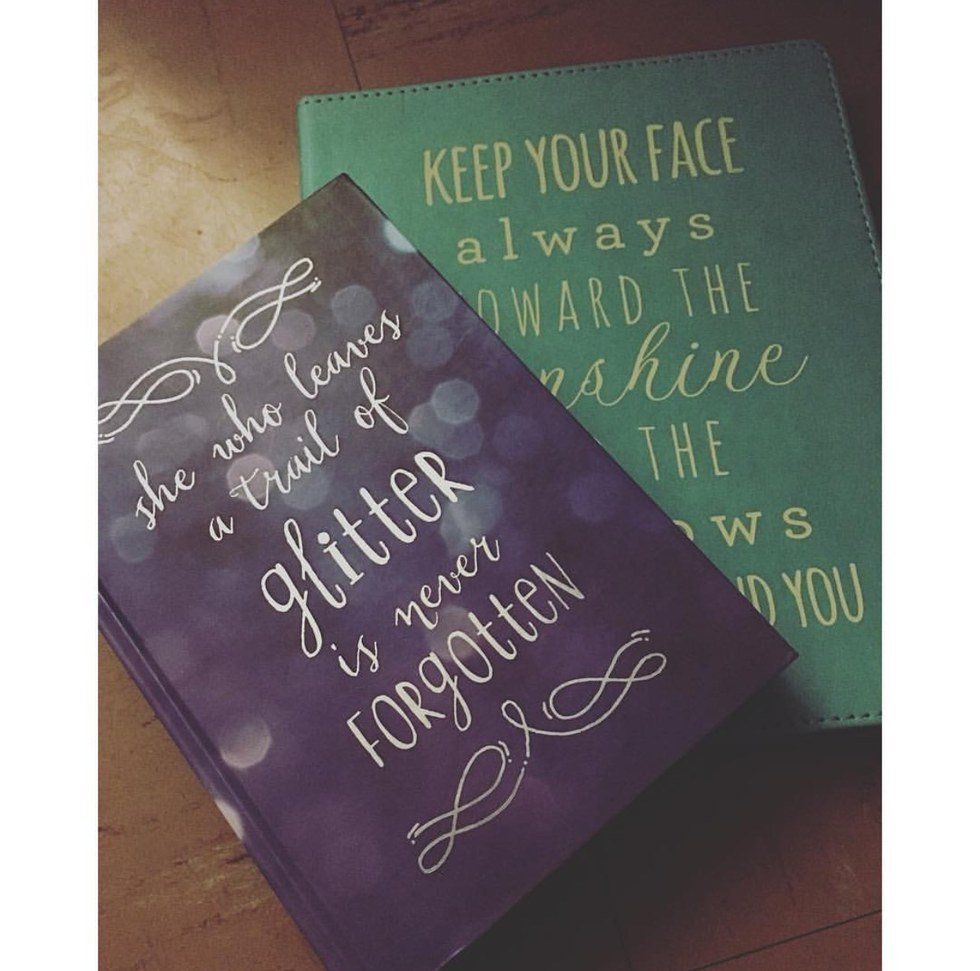 she who leaves
a trail of
glitter
is never
FORgOtteN
KEEP YOUR FACE
always
OWARD THE
nshine
THE
ows
D YOU